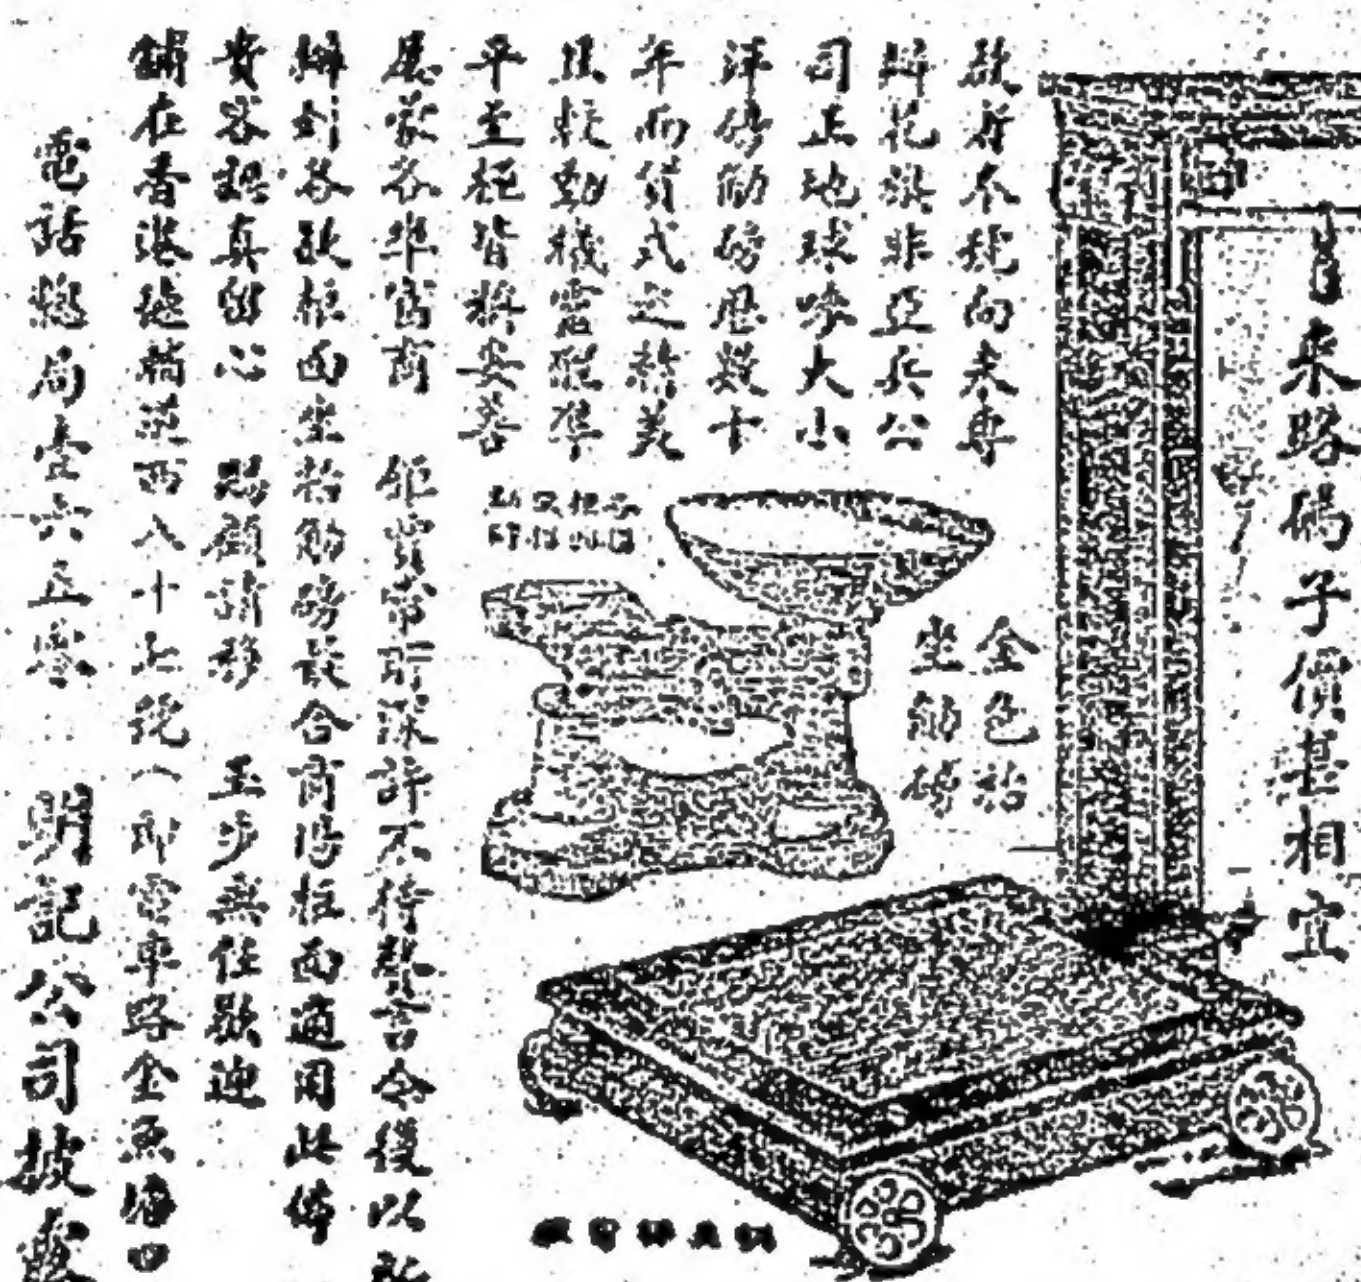 來路碼子價甚相宜
啟者本號向來專
辦花旗非亞兵公
司正地球嘜大小
洋磅觔磅歷數十
年而貨式之精美
且較動機靈醒準
平至極皆稱妥善
屢蒙各界富商 賞 所深許不待 言今後以
辦到各款枱面坐枱觔磅最合商塲枱面適用此佈
貴客認真留心 賜顧請移 玉步無任歡迎
舖在香港德輔道西八十七號（即電車路金魚塘口
電話總局壹六五零 明記公司披露
金色枱
坐觔磅